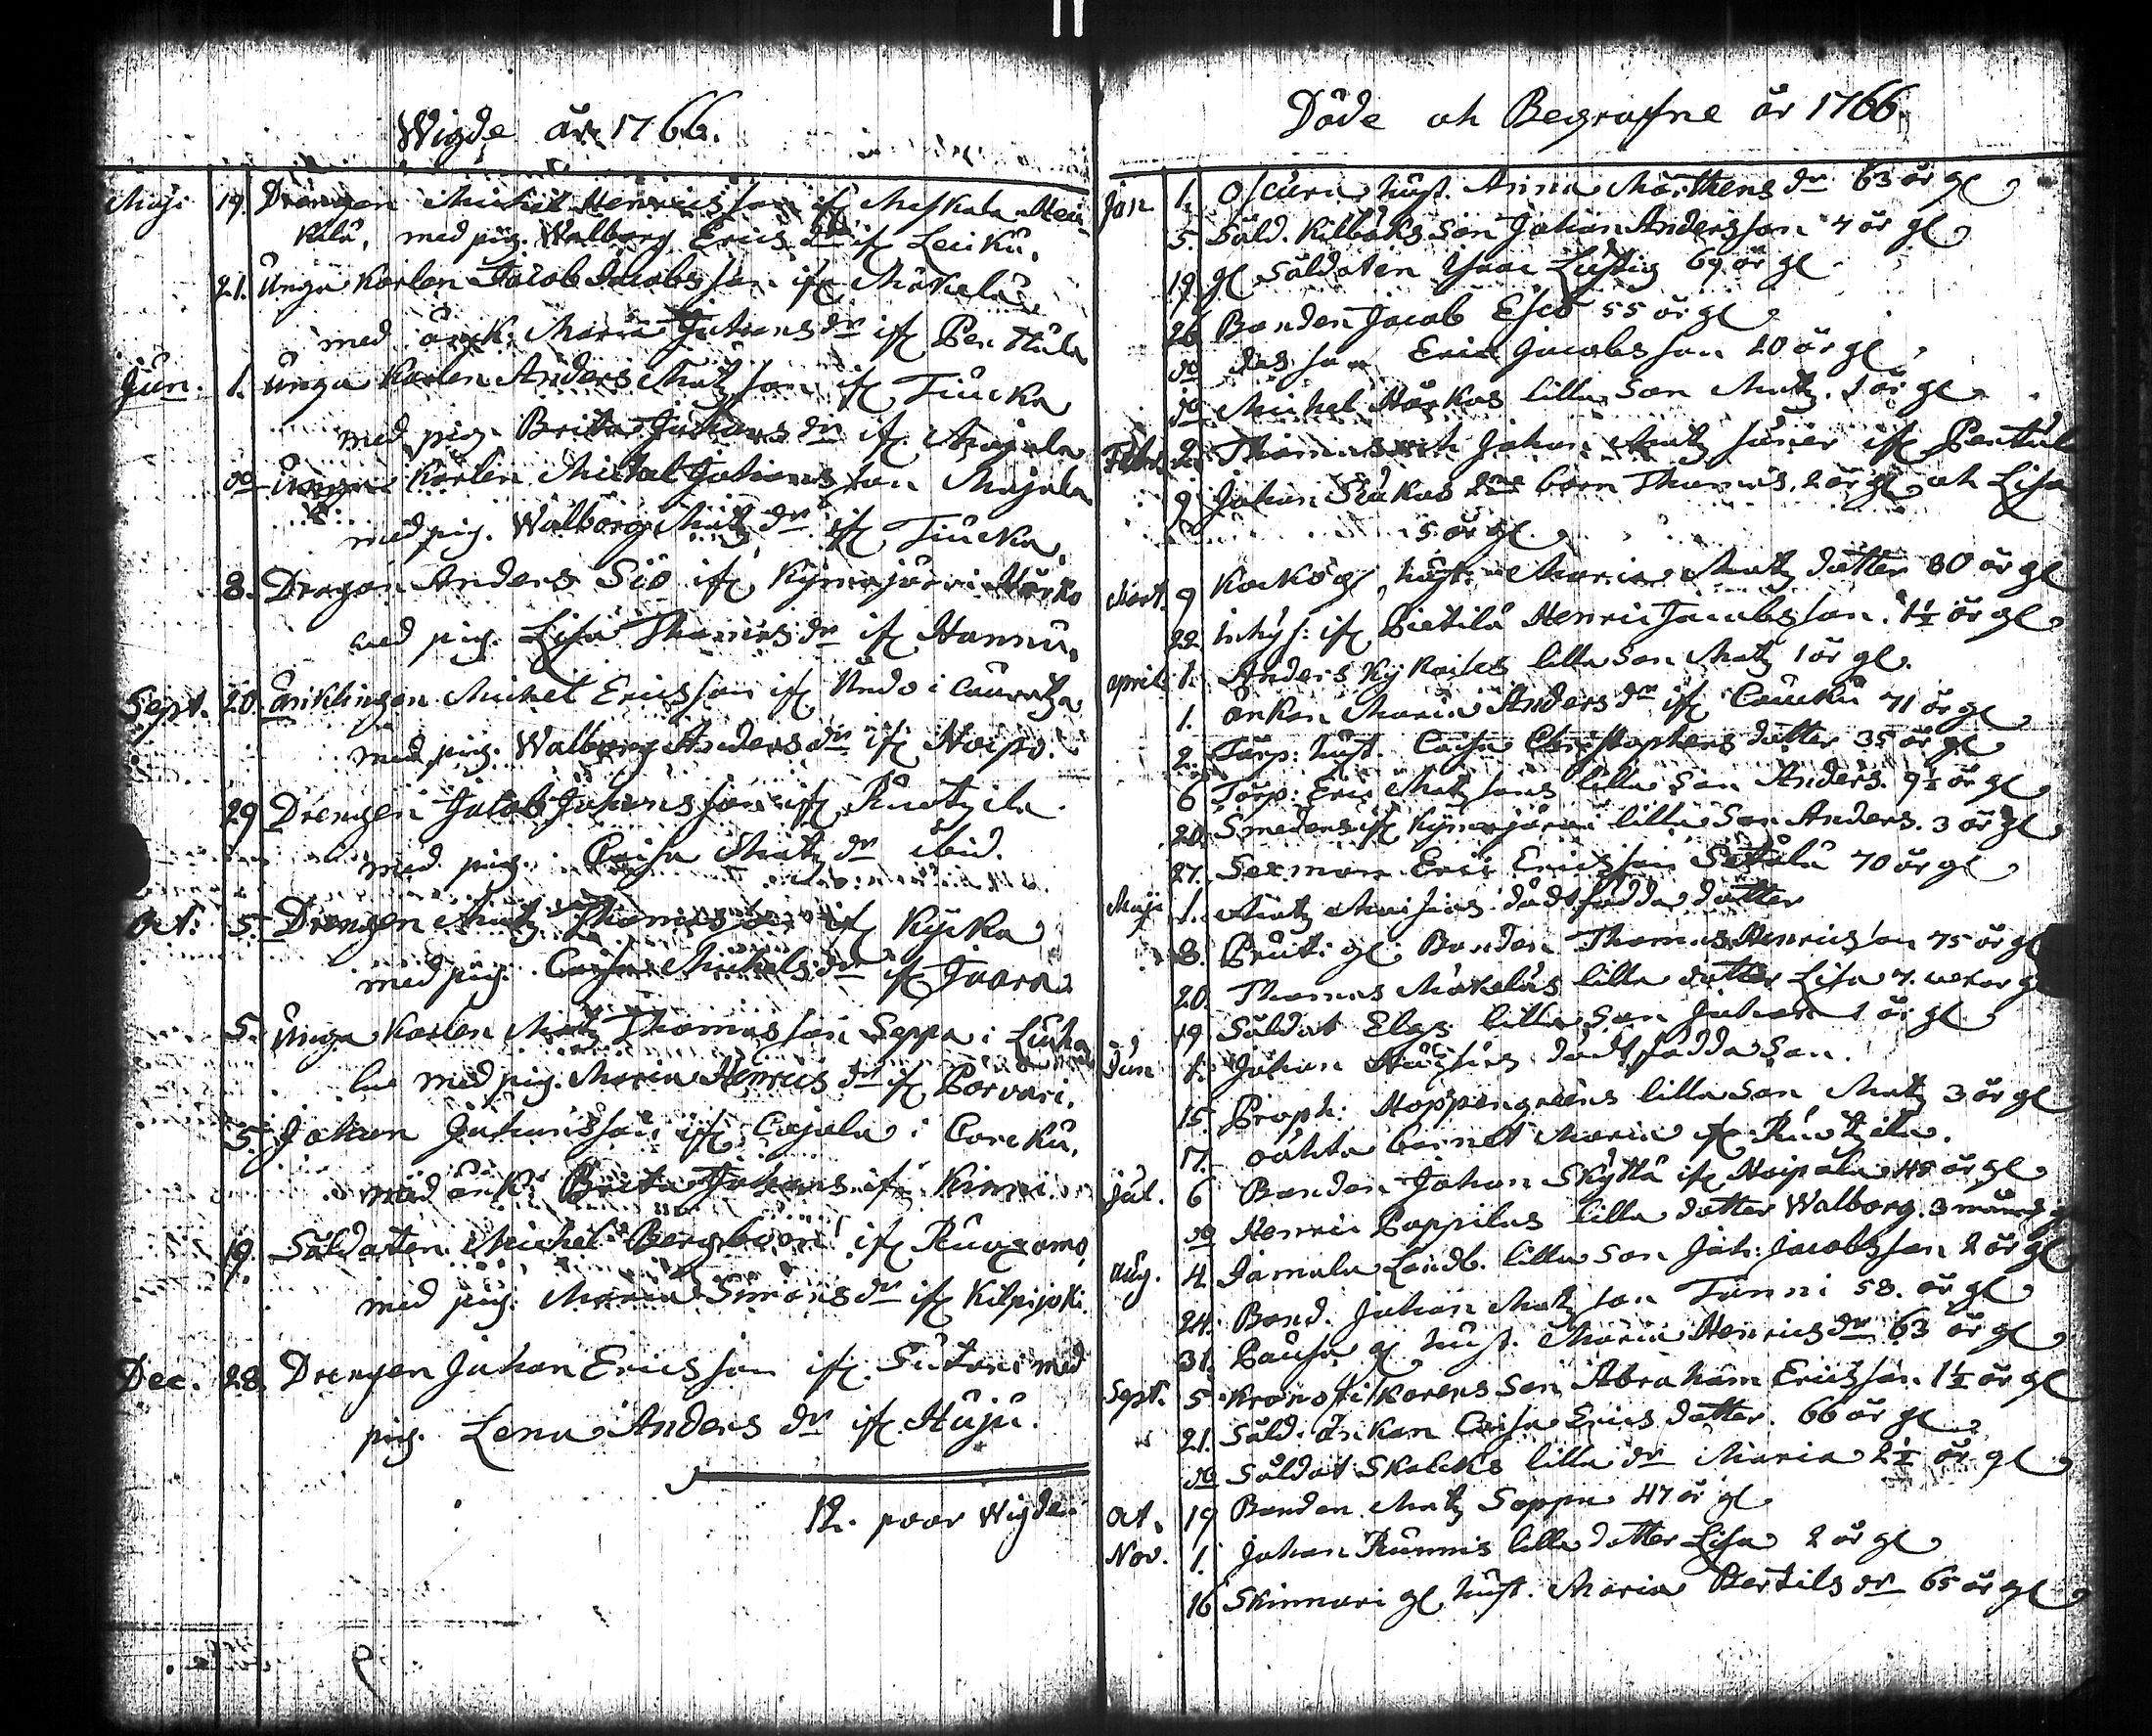 Wigde åhr 1766.
Maji 19. Drängen Michel Henricsson ifr. Meskala Hei
kilä, med pig. Walborg Erics dr ifr. Leiku,
21. Unga Karlen Jacob Jacobsson ifr Mäkelä
med änk: Maria Johans dr ifr Penttula
Jun. 1. Unga Karlen Anders Matzson ifr Tiucka
med pig. Brita Johans dr ifr Majala
do Unga Karlen Michel Johansson Majala
med pig. Walborg Matz dr ifr Tiucka,
8. Dragon Anders Siö ifr Kijmajärvi Härko
med pig. Lisa Thomas dr ifr Hannu,
Sept. 20. änklingen Michel Ericsson ifr Undo i
med pig. Walborg Anders dr ifr Noipo.
29 Drengen Jacob Johansson ifr Ruatzila
med pig. Caisa Matz dr ibid.
Oct: 5. Drengen Matz Thomasson ifr Kycka
med pig. Caisa Michels dr ifr Jaara.
5. Unga Karlen Matz Thomasson Seppä i Liuha
la med pig. Maria Henrics dr ifr Porvari.
5. Johan Johansson ifr Cajala i Carcku,
med änk: Brita Johans ifr Kinni.
19. Soldaten Michel Bergbiörn ifr Ruoxamo,
med pig. Maria Simons dr ifr Kilpijoki
Dec. 28. Drengen Johan Ericsson ifr. Sutari med
pig. Lena Anders dr ifr Huju.
12. paar Wigde.
Döde och Begrafne år 1766.
Jan. 1. Oscura hust. Anna Mårthens dr 63 år gl
5 Sold. Kilboks Son Johan Andersson 4 år gl
19. gl Soldaten Isaac Lustig 69 år gl
26 Bonden Jacob Esco 55 år gl
do des son Eric Jacobsson 20 år gl
do Michel Harkas lilla Son Matz. 1 år gl
Febr. 2. Thomas och Johan Matz söner ifr Pentul
9 Johan Siukas 2ne barn Thomas. 2 år gl och Lisa
5 år gl.
Mart. 9 Kockos gl, hust. Maria Matz dotter 80 år gl
22. inhys: ifr Pietilä Henric Jacobsson. 1½ år gl
April 1. Anders Kykoises lilla Son Matz 1 år gl.
1. änkan Maria Anders dr ifr Caucku 71 år gl
2. Torp: hust. Caisa Christophers dotter 35 år gl
6 Torp: Eric Matzsons lilla Son Anders. 9½ år gl
20. Smedens ifr Kijmajärvi lilla Son Anders. 3 år gl
27. Sexman Eric Ericsson Setälä 70 år gl
Maji 1. Matz Maisias dödfödda dotter
8. Pruti gl. Bonden Thomas Henricson 75 år gl
20. Thomas Mäkeläs lilla dotter Lisa 7. wekor g
19 Soldat Elgs lilla Son Johan 1 år gl
Jun 1. Johan dödfödda Son.
15. Proph: Hoppengreens lilla Son Matz 3 år gl
17. oähta barnet Maria ifr Ruatzila.
Jul. 6 Bonden Johan Skyttä ifr Noipala 48 år gl
do Henric Pappilas lilla dotter Walborg. 3 månad g
Aug. 4. Jamala Landb. lilla Son Joh: Jacobsson 2 år gl
24. Bond. Johan Matzson Tanni 58. år gl
31. Pausa gl hust. Maria Henrics dr 63 år gl
Sept. 5 Kronofiskarens Son Abraham Ericsson. 1½ år gl
21. Sold. änkan Caisa Erics dotter. 66 år gl
do Soldat Skalcks lilla dr Maria 2½ år gl
Oct. 19 Bonden Matz Seppä 47 år gl
Nov. 1. Johan Runnis lilla dotter Lisa 2 år gl
16 Skinnari gl hust. Maria Bertils dr 65 år gl